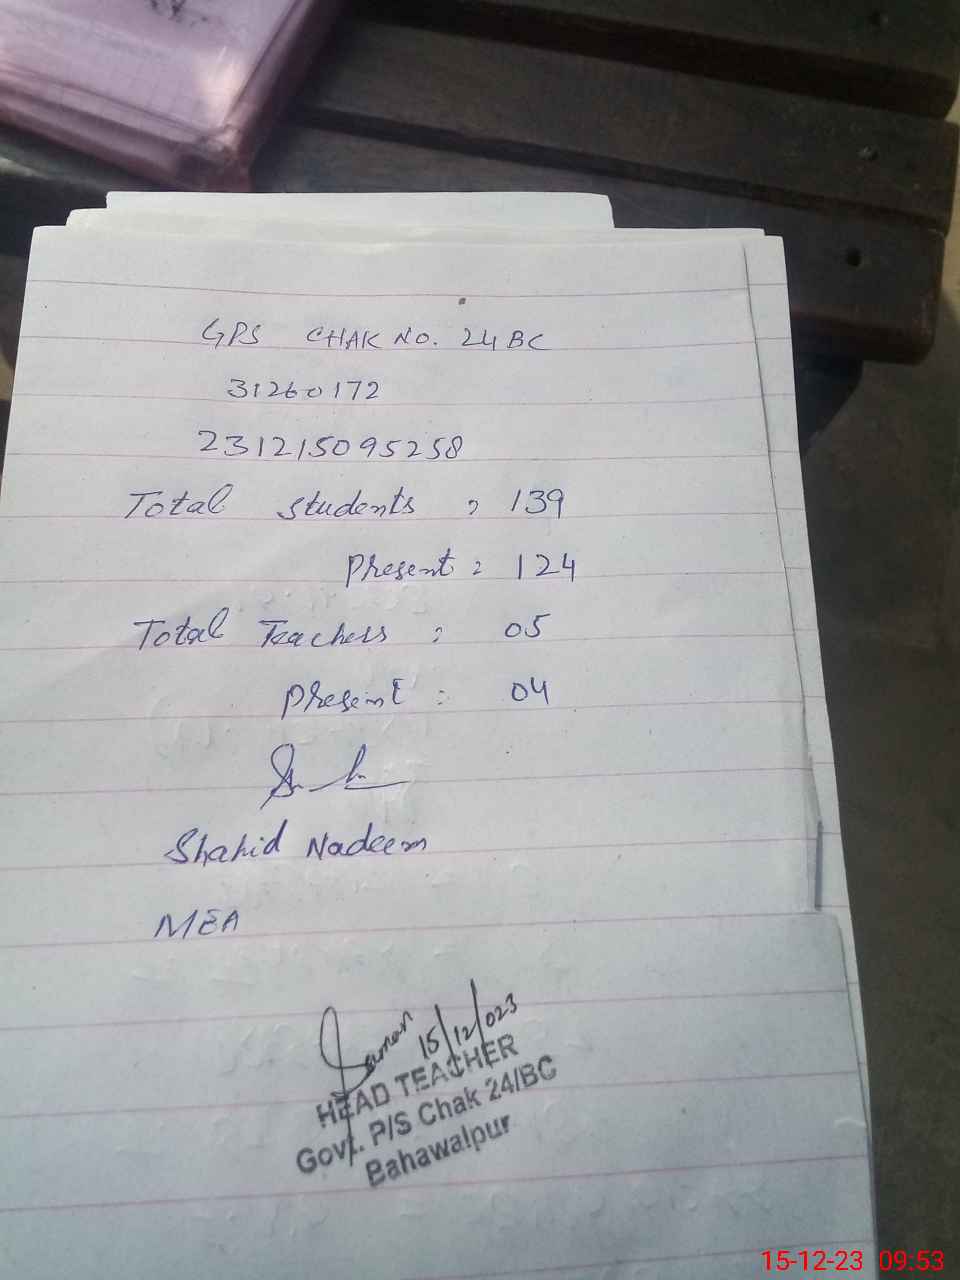 GPS CHAK NO. 24 BC
31260172
231215095258
Total students : 139
Present : 124
Total Teachers : 05
Present : 04
Shahid Nadeem
MEA
15/12/023
HEAD TEACHER
Govt. P/S Chak 24/BC
Bahawalpur
15-12-23 09:53